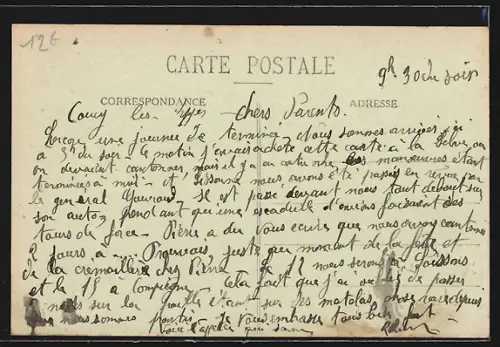 12€
CARTE POSTALE
9h 30 du soir
CORRESPONDANCE
ADRESSE
Coucy les Eppes - Chers Parents.
Encore une journée de terminée. Nous sommes arrivés ici
à 5h du soir. Le matin j'avais acheté cette carte à la
on devait cantonner mais il y a eu les manœuvres étant
terminées à midi. A Sissonne nous avons été passés en revue par
le général Gouraud. Il est passé devant nous tout debout sur
son auto, pendant que une escadrille d'avions faisaient des
tours de force. Pierre a dû vous écrire que nous avons cantonné
2 jours à juste au moment de la fête et
de la cremaillère chez Pierre. Le 12 nous serons à Soissons
et le 18 à Compiègne. Cela fait que j'ai de passer
nuits sur la paille étant sur des matelas
nous sommes partis. Je vous embrasse tous bien fort
Voici l'appel qui sonne